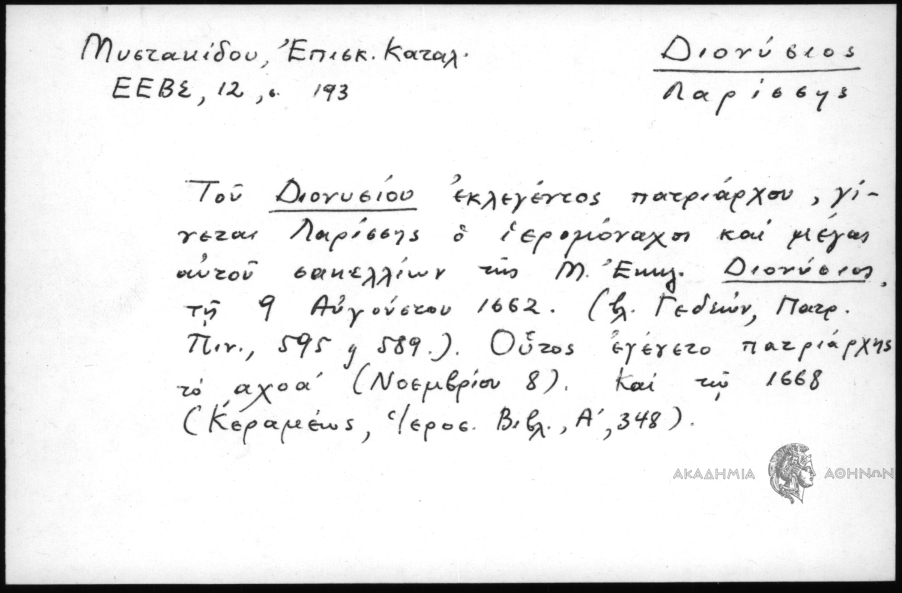 Μυστακίδου, Ἐπισκ. Καταλ.
ΕΕΒΣ, 12, σ. 193
Διονύσιος
Λαρίσσης
Τοῦ Διονυσίου ἐκλεγέντος πατριάρχου, γί-
νεται Λαρίσσης ὁ ἱερομόναχος καὶ μέγας
αὐτοῦ σακελλίων τῆς Μ. Ἐκκλ. Διονύσιος,
τῇ 9 Αὐγούστου 1662. (βλ. Γεδεών, Πατρ.
Πιν., 595 ἤ 589.). Οὗτος ἐγένετο πατριάρχης
τὸ αχοα' (Νοεμβρίου 8). Καὶ τῷ 1668
(Κεραμέως, Ἱεροσ. Βιβλ., Α', 348).
ΑΚΑΔΗΜΙΑ ΑΘΗΝΩΝ